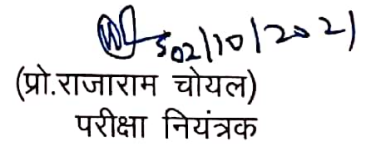 02/10/2021
(प्रो.राजाराम चोयल)
परीक्षा नियंत्रक